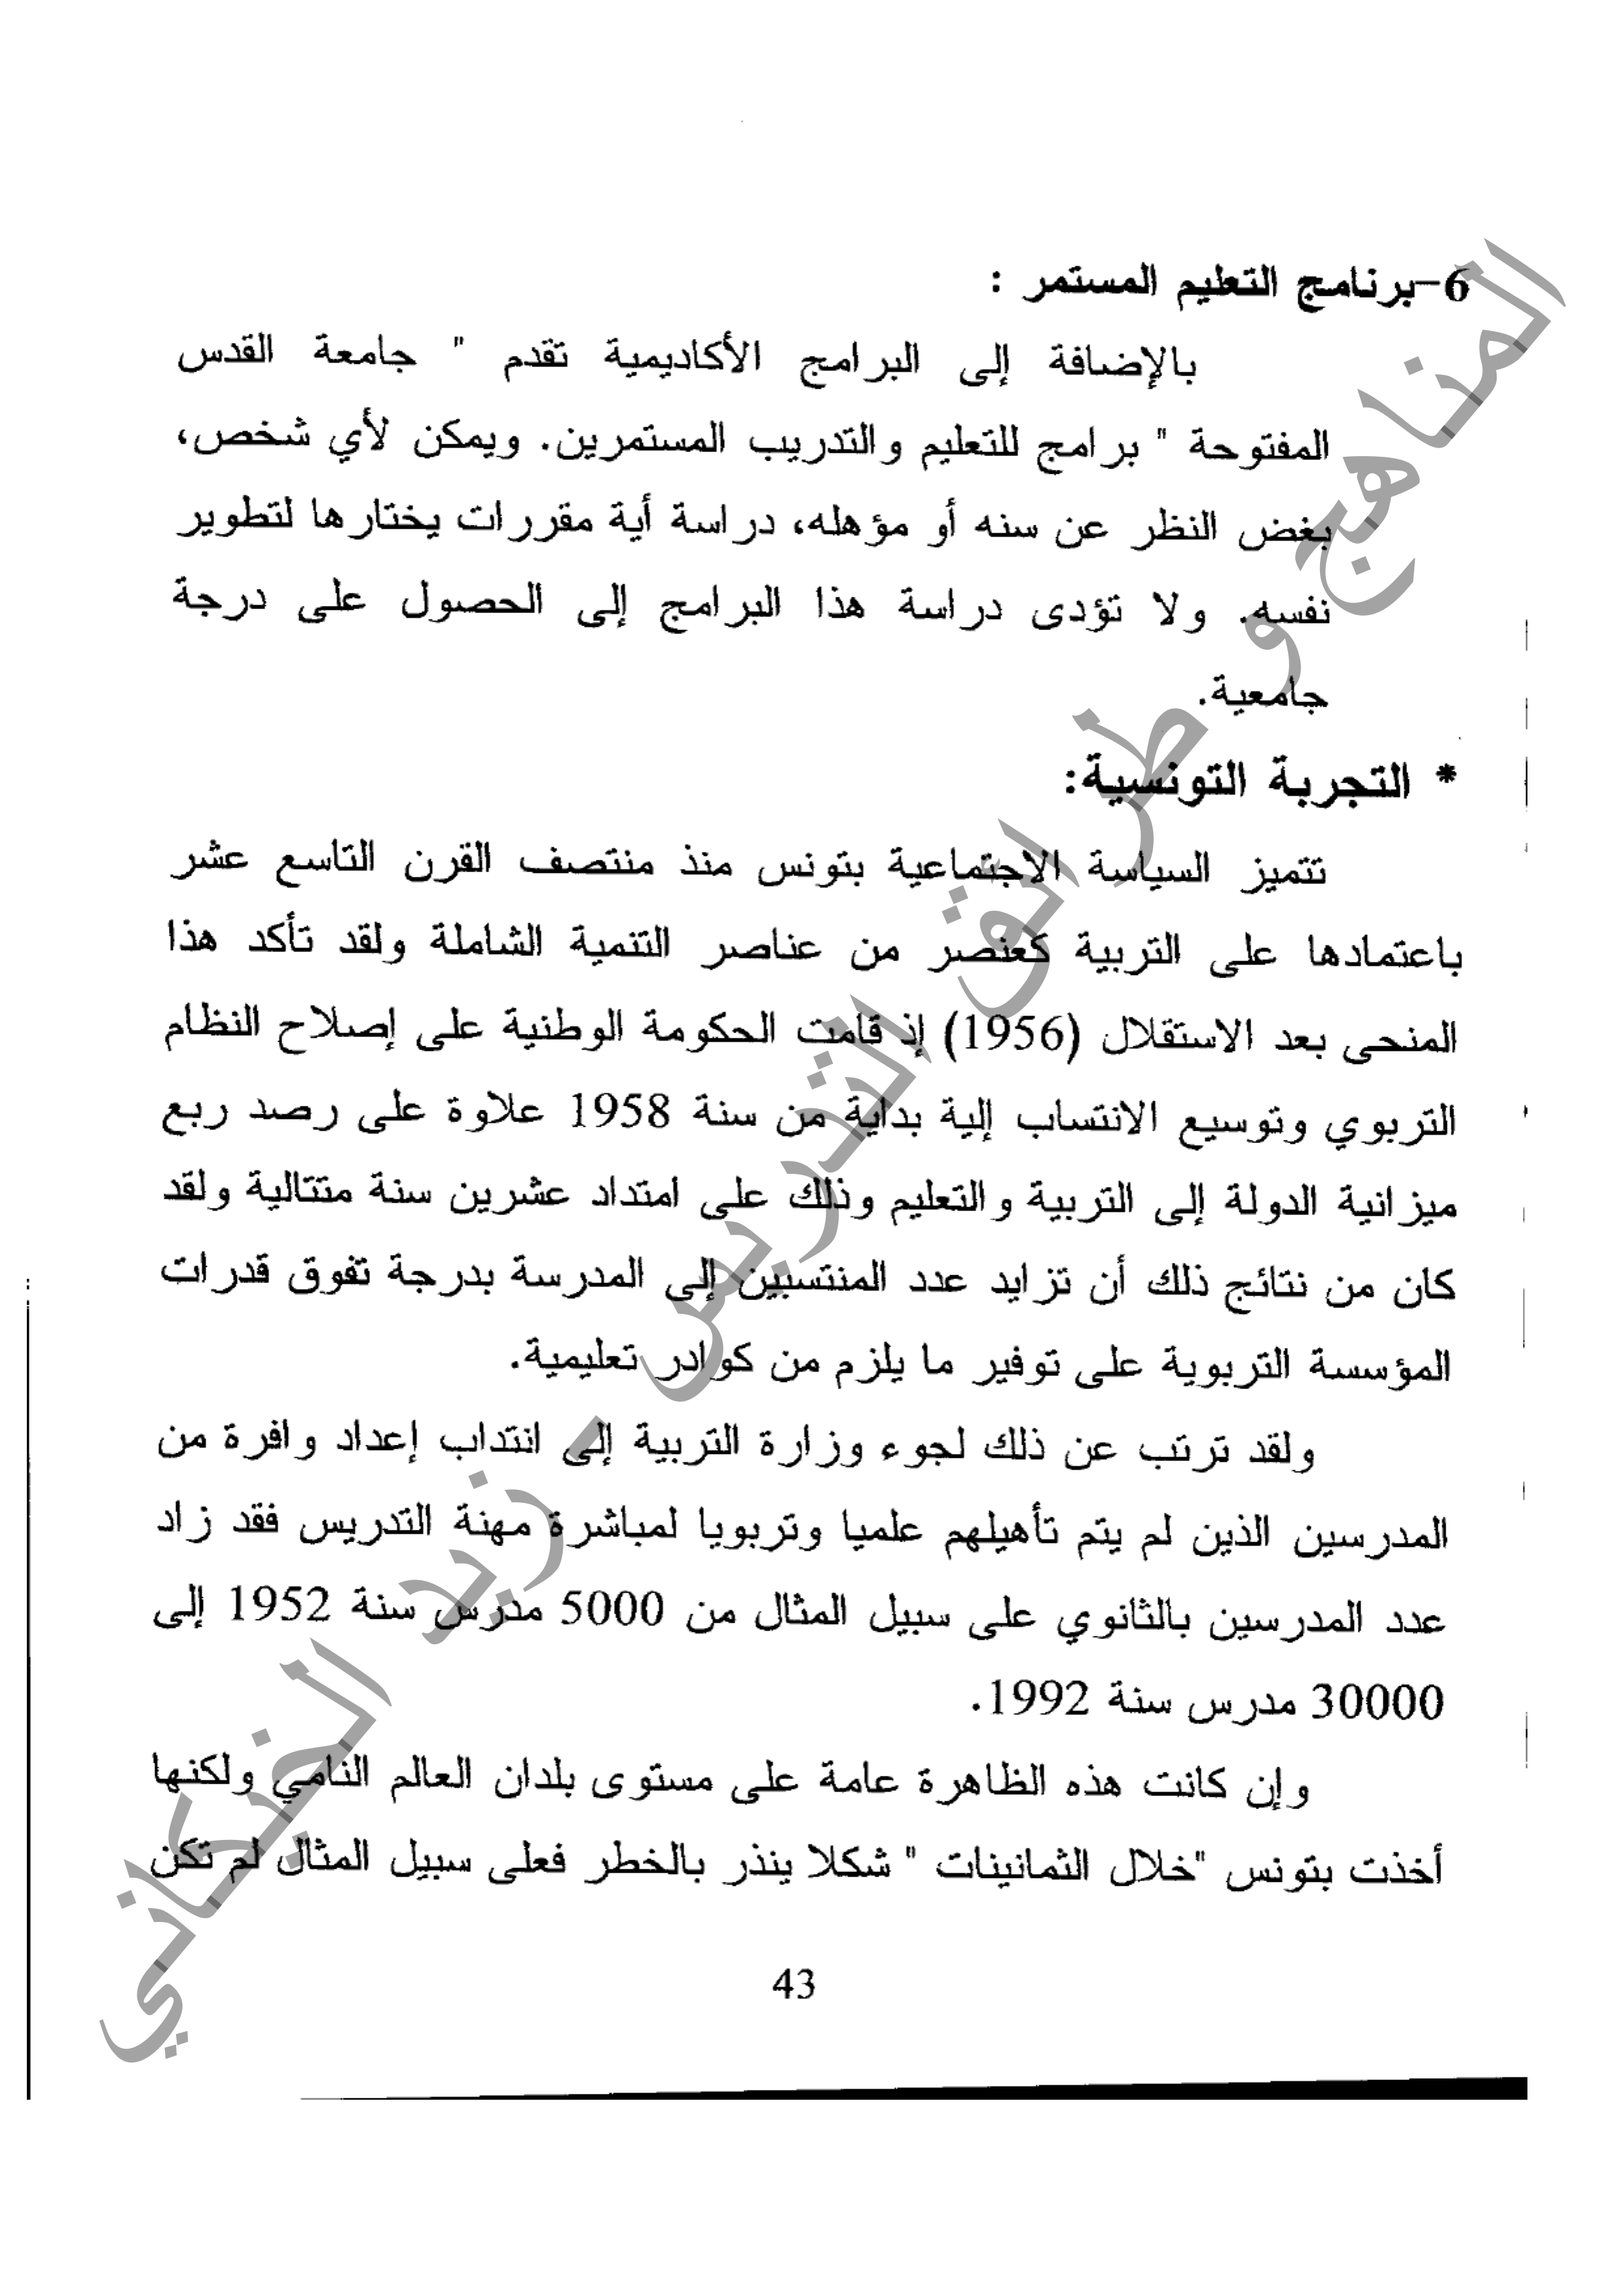 6-برنامج التعليم المستمر :
بالإضافة إلى البرامج الأكاديمية تقدم " جامعة القدس
المفتوحة " برامج للتعليم والتدريب المستمرين. ويمكن لأي شخص،
بغض النظر عن سنه أو مؤهله، دراسة أية مقررات يختارها لتطوير
نفسه. ولا تؤدى دراسة هذا البرامج إلى الحصول على درجة
جامعية.
* التجربة التونسية:
تتميز السياسة الاجتماعية بتونس منذ منتصف القرن التاسع عشر
باعتمادها على التربية كعنصر من عناصر التنمية الشاملة ولقد تأكد هذا
المنحى بعد الاستقلال (1956) إذ قامت الحكومة الوطنية على إصلاح النظام
التربوي وتوسيع الانتساب إلية بداية من سنة 1958 علاوة على رصد ربع
ميزانية الدولة إلى التربية والتعليم وذلك على امتداد عشرين سنة متتالية ولقد
كان من نتائج ذلك أن تزايد عدد المنتسبين إلى المدرسة بدرجة تفوق قدرات
المؤسسة التربوية على توفير ما يلزم من كوادر تعليمية.
ولقد ترتب عن ذلك لجوء وزارة التربية إلى انتداب إعداد وافرة من
المدرسين الذين لم يتم تأهيلهم علميا وتربويا لمباشرة مهنة التدريس فقد زاد
عدد المدرسين بالثانوي على سبيل المثال من 5000 مدرس سنة 1952 إلى
30000 مدرس سنة 1992.
وإن كانت هذه الظاهرة عامة على مستوى بلدان العالم النامي ولكنها
أخذت بتونس "خلال الثمانينات " شكلا ينذر بالخطر فعلى سبيل المثال لم تكن
43
المناهج و طرائق التدريس - زيد الخيكاني